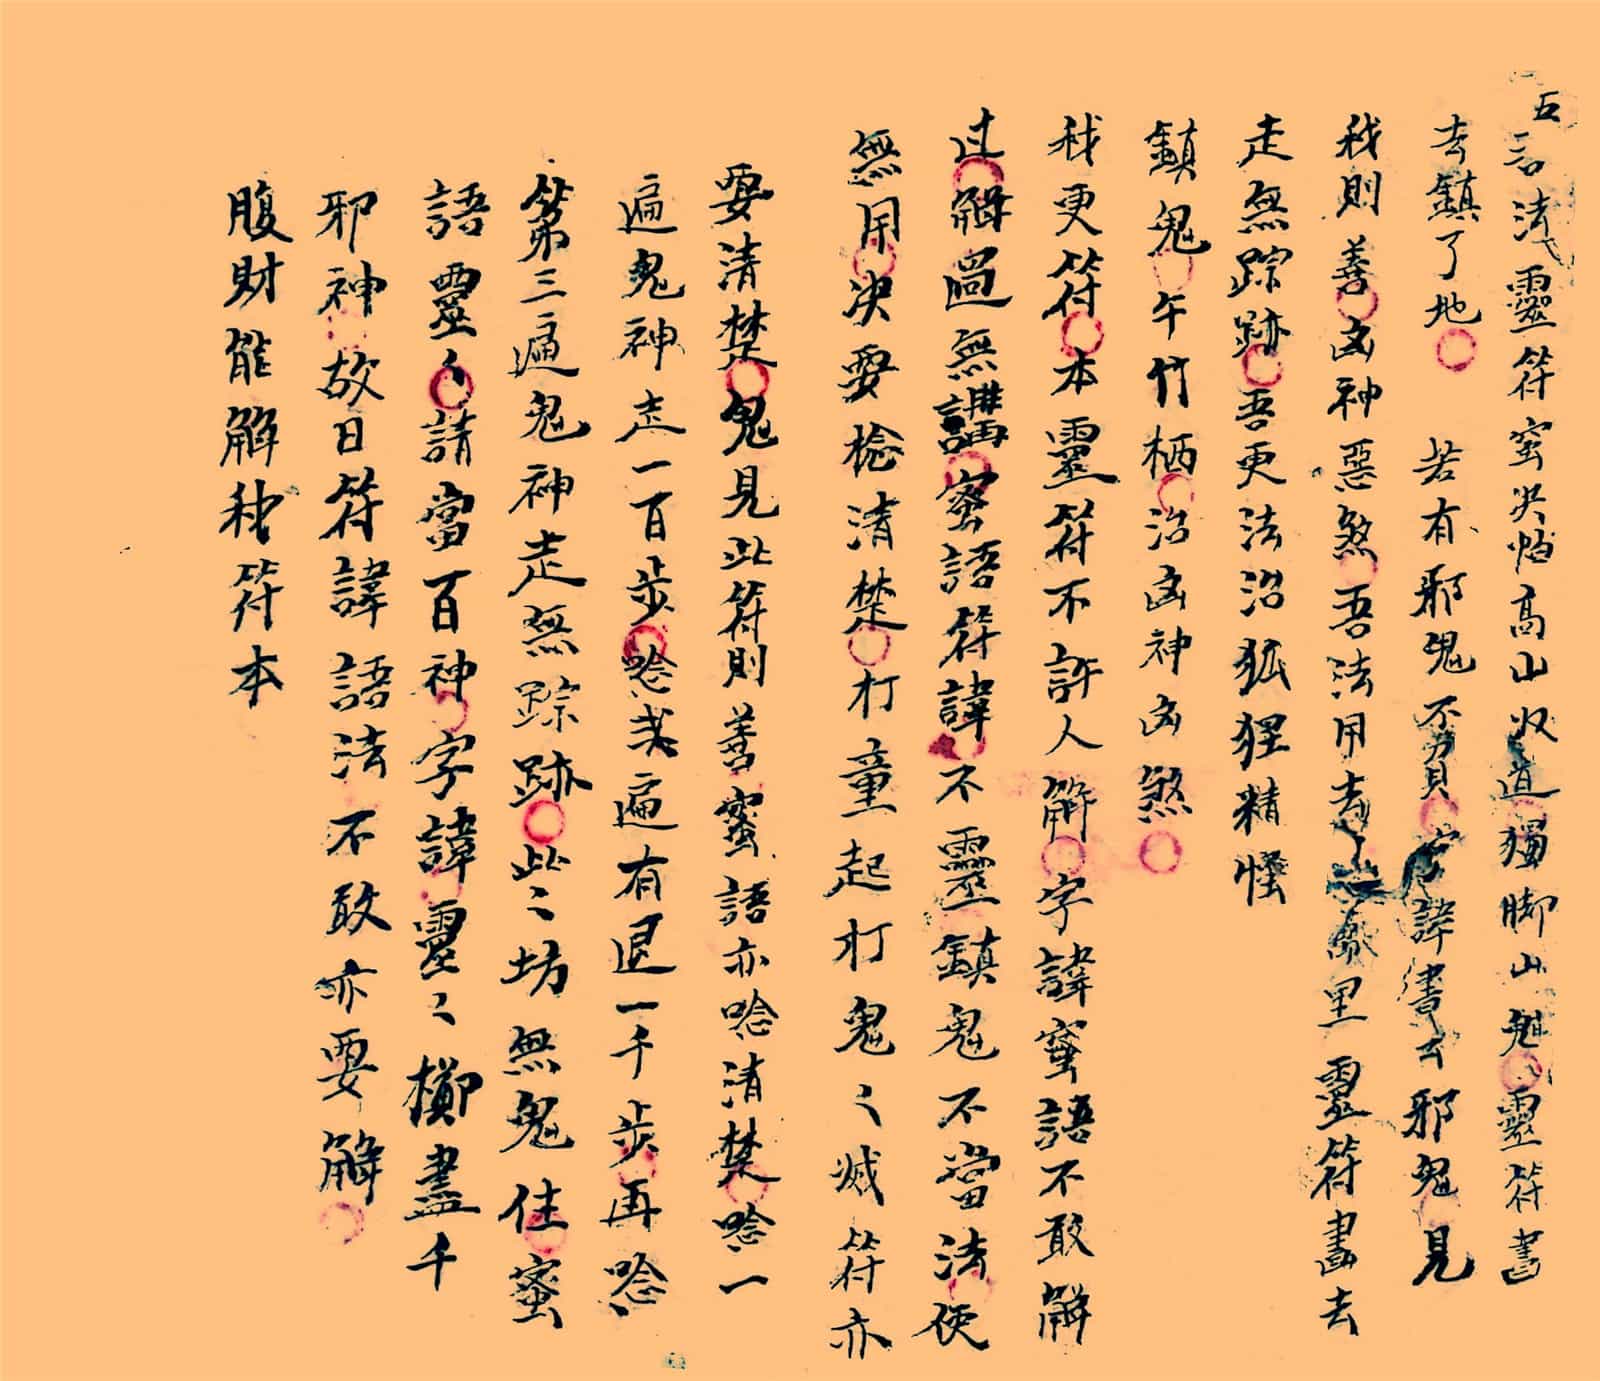 五言法靈符蜜決帖高山収道獨脚山鬼靈符書
去鎮了地若有邪鬼不字諱書去邪鬼見
我則善凶神惡煞吾法用去里靈符畫去
走無踪跡吾更法治狐狸精怪
鎮鬼午竹栖治凶神凶煞
我更符本靈符不許人解字諱蜜語不敢解
过解過無講蜜語符諱不靈鎮鬼不當法便
無用决要棯清楚打童起打鬼〻滅符亦
要清楚鬼見此符則善蜜語亦唸清楚唸一
遍鬼神走一百步唸弍遍有退一千步再唸
第三遍鬼神走無踪跡此〻坊無鬼住蜜
語靈〻請當百神字諱靈〻榔盡千
邪神故日符諱語法不敢亦要解
腹財能解秘符本